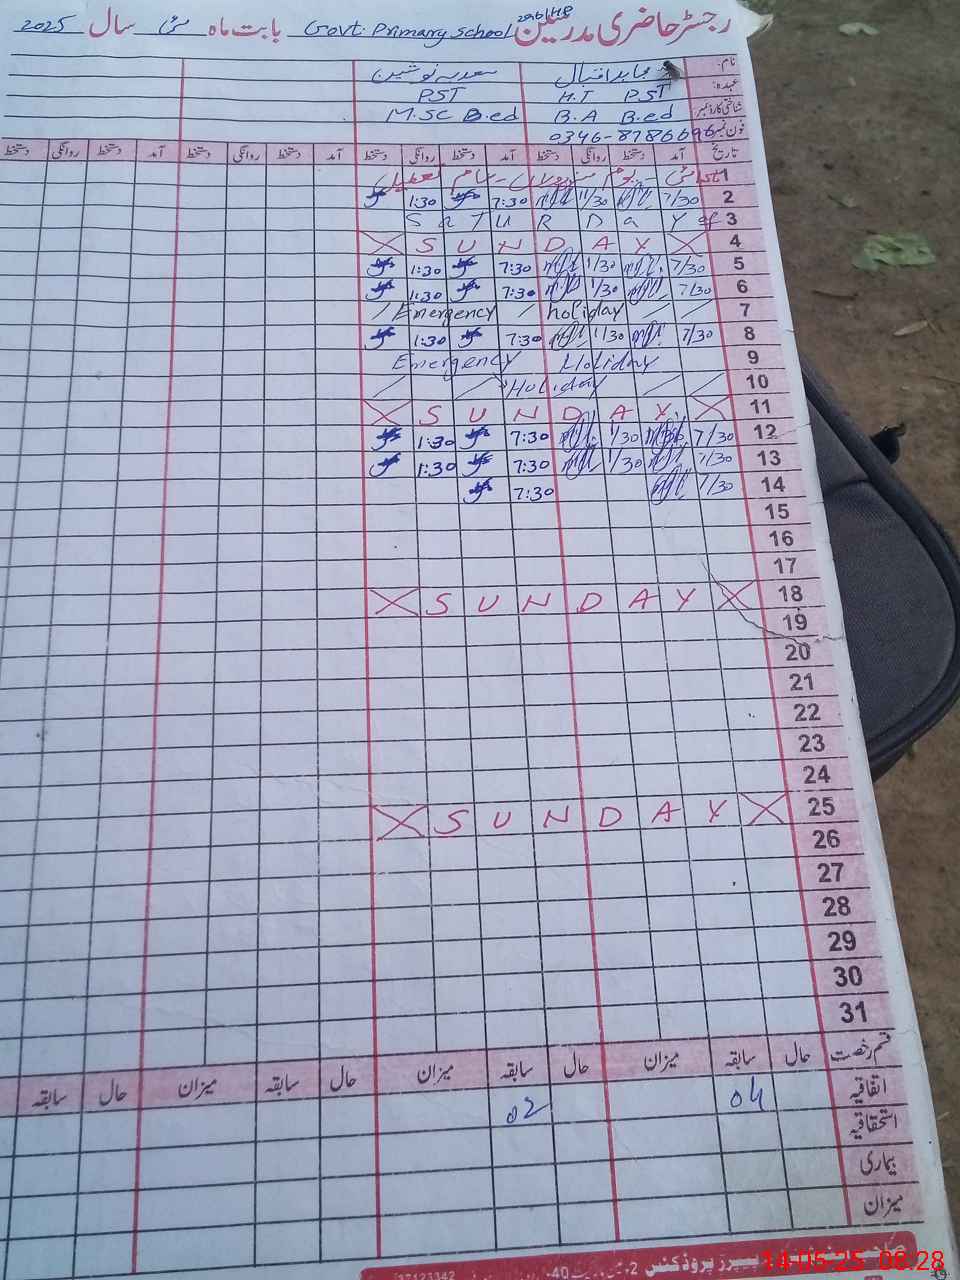 رجسٹر حاضری مدرسین Govt. Primary School 296/HB بابت ماہ مئی سال 2025
نام: جابر اقبال سعدیہ نوشین
عہدہ: H.T PST PST
شناختی کارڈ نمبر B.A B.ed M.SC B.ed
فون نمبر 0346-8786696
تاریخ آمد دستخط روانگی دستخط آمد دستخط روانگی دستخط آمد دستخط روانگی دستخط آمد دستخط روانگی دستخط
1 عام تعطیل
2 7/30 1/30 7:30 1:30
3 SaTURDaY
4 SUNDAY
5 7/30 1/30 7:30 1:30
6 7/30 1/30 7:30 1:30
7 Emergency holiday
8 7/30 1/30 7:30 1:30
9 Emergency Holiday
10 Holiday
11 SUNDAY
12 7/30 1/30 7:30 1:30
13 7/30 1/30 7:30 1:30
14 7/30 7:30
15
16
17
18 SUNDAY
19
20
21
22
23
24
25 SUNDAY
26
27
28
29
30
31
قسم رخصت حال سابقہ میزان حال سابقہ میزان حال سابقہ میزان حال سابقہ
اتفاقیہ 04 02
استحقاقیہ
بیماری
میزان
پیپرز پروڈکٹس 2
37123342
14-05-25 08:28